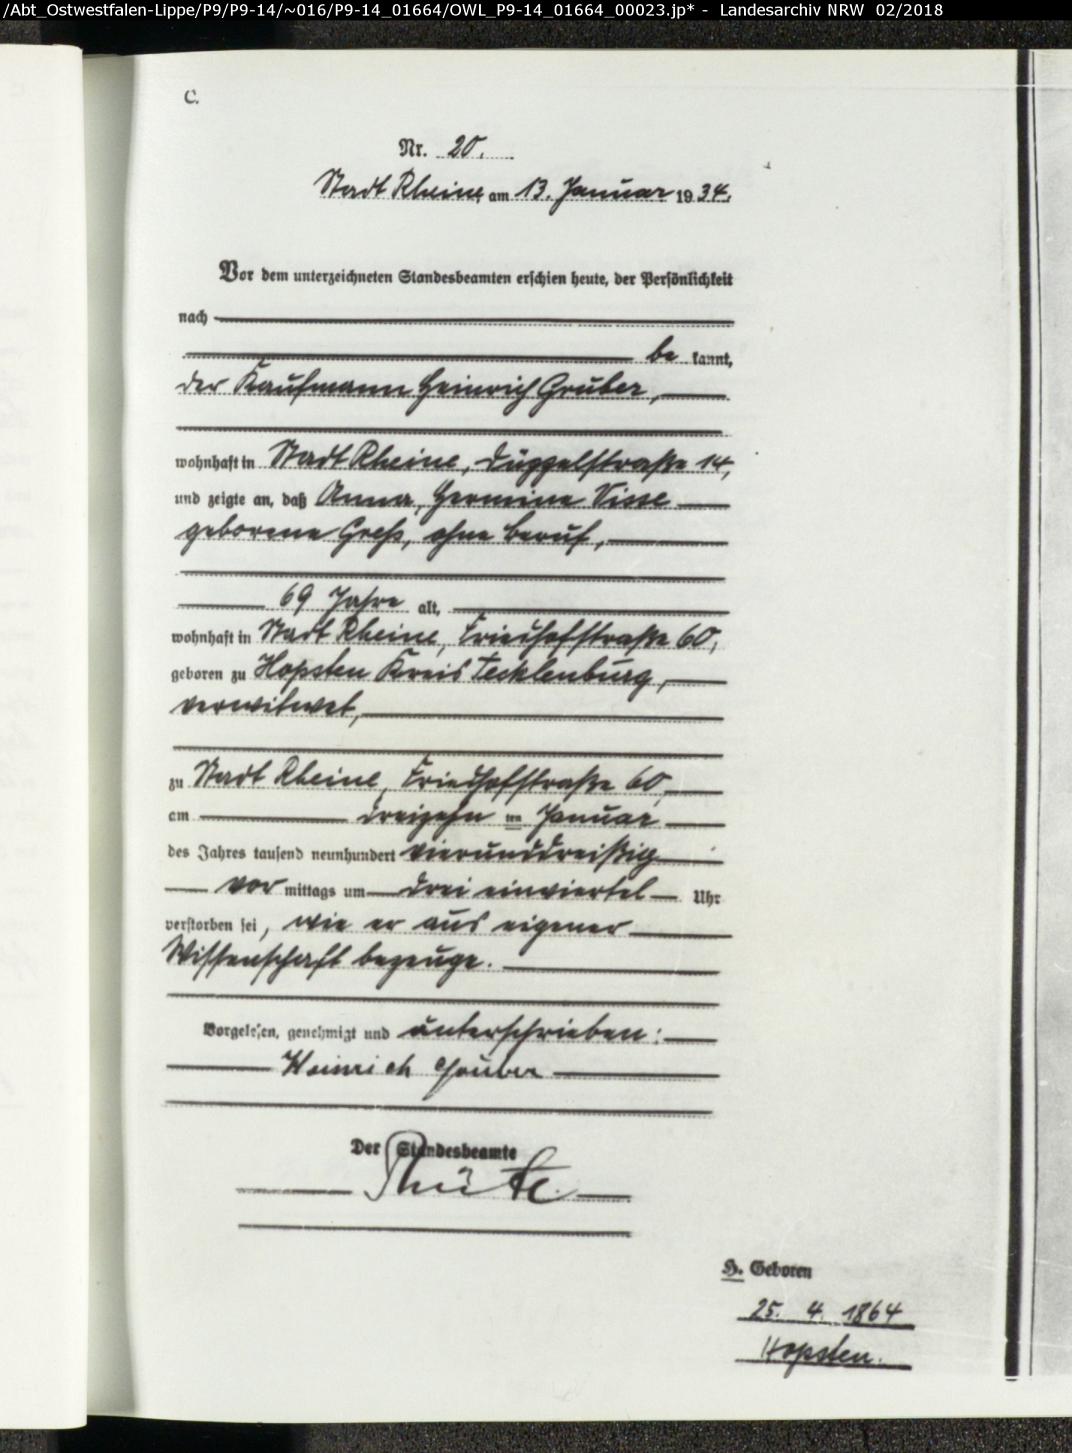 /Abt_Ostwestfalen-Lippe/P9/P9-14/~016/P9-14_01664/OWL_P9-14_01664_00023.jp* - Landesarchiv NRW 02/2018
C.
Nr. 20.
Stadt Rheine, am 13. Januar 1934.
Vor dem unterzeichneten Standesbeamten erschien heute, der Persönlichkeit
nach
be kannt,
der Kaufmann Heinrich Gruber,
wohnhaft in Stadt Rheine, Düppelstraße 14,
und zeigte an, daß Anna, Hermine Visse
geborene Greß, ohne Beruf,
69 Jahre alt,
wohnhaft in Stadt Rheine, Friedhofstraße 60,
geboren zu Hopsten Kreis Tecklenburg,
verwitwet,
zu Stadt Rheine, Friedhofstraße 60,
am dreizehn ten Januar
des Jahres tausend neunhundert vierunddreißig
vor mittags um drei einviertel Uhr
verstorben sei, wie er aus eigener
Wissenschaft bezeuge.
Vorgelesen, genehmigt und unterschrieben:
Heinrich Gruber
Der Standesbeamte
H. Geboren
25. 4. 1864
Hopsten.